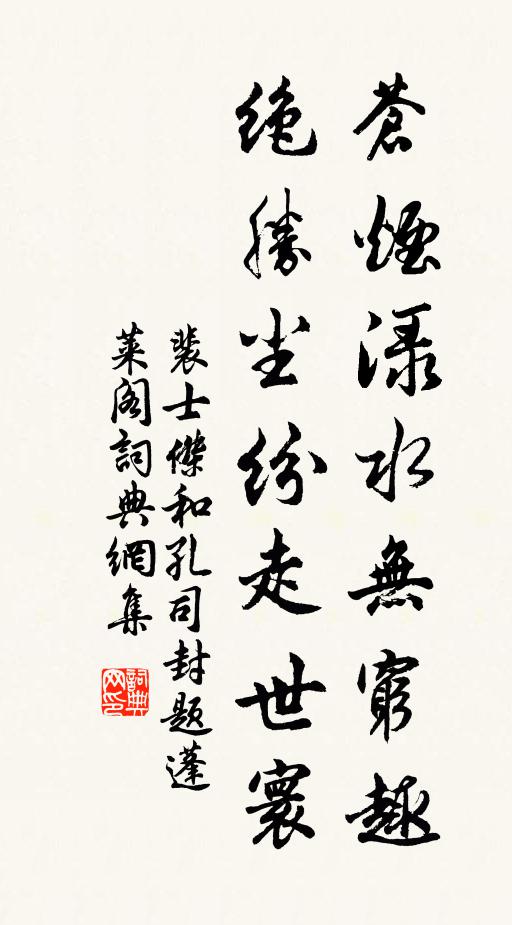 蒼煙渌水無窮趣
絶勝坌紛走世寰
裴士傑和孔司封題蓬
萊閣詞典網集
詞典網印